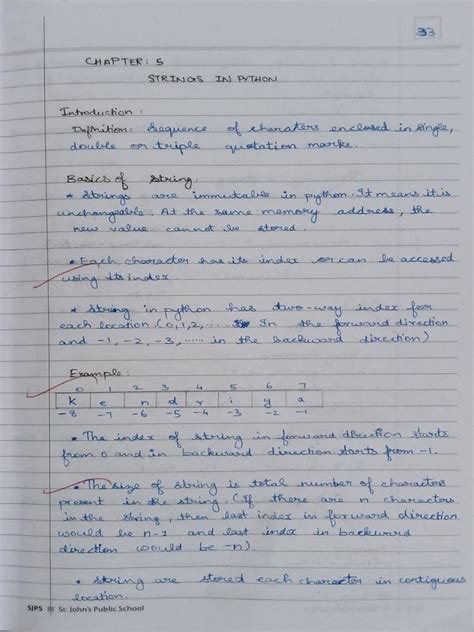 33
CHAPTER: 5
STRINGS IN PYTHON
Introduction:
Definition: Sequence of charaters enclosed in single,
double or triple quotation marks.
Basics of String:
* Strings are immutable in python. It means it is
unchangeable. At the same memory address, the
new value cannot be stored.
* Each character has its index or can be accessed
using its index.
* String in python has two-way index for
each location (0,1,2, ..... In the forward direction
and -1, -2, -3, ..... in the backward direction)
Example:
0 1 2 3 4 5 6 7
K e n d r i y a
-8 -7 -6 -5 -4 -3 -2 -1
* The index of string in forward direction starts
from 0 and in backward direction starts from -1.
* The size of string is total number of characters
present in the string. (If there are n characters
in the string, then last index in forward direction
would be n-1 and last index in backward
direction would be -n).
* String are stored each character in contiguous
location.
SJPS St. John's Public School